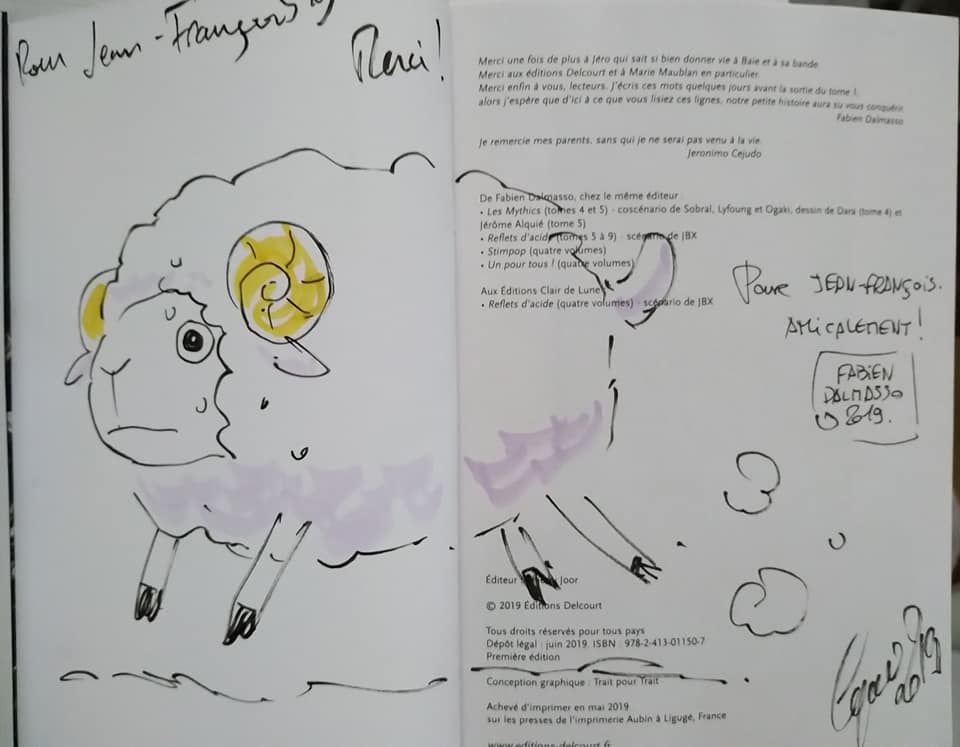 Pour Jean-François
Merci !
Merci une fois de plus à Jéro qui sait si bien donner vie à Baie et à sa bande.
Merci aux éditions Delcourt et à Marie Maublan en particulier.
Merci enfin à vous, lecteurs. J'écris ces mots quelques jours avant la sortie du tome 1,
alors j'espère que d'ici à ce que vous lisiez ces lignes, notre petite histoire aura su vous conquérir.
Fabien Dalmasso
Je remercie mes parents, sans qui je ne serai pas venu à la vie.
Jeronimo Cejudo
De Fabien Dalmasso, chez le même éditeur :
• Les Mythics (tomes 4 et 5) - coscénario de Sobral, Lyfoung et Ogaki, dessin de Dara (tome 4) et
Jérôme Alquié (tome 5)
• Reflets d'acide (tomes 5 à 9) - scénario de JBX
• Stimpop (quatre volumes)
• Un pour tous ! (quatre volumes)
Aux Éditions Clair de Lune
• Reflets d'acide (quatre volumes) - scénario de JBX
Pour JEAN-FRANÇOIS.
AMICALEMENT !
FABIEN
DALMASSO
2019.
Éditeur Joor
© 2019 Éditions Delcourt
Tous droits réservés pour tous pays
Dépôt légal : juin 2019. ISBN : 978-2-413-01150-7
Première édition
Conception graphique : Trait pour Trait
Achevé d'imprimer en mai 2019
sur les presses de l'imprimerie Aubin à Ligugé, France
www.editions-delcourt.fr